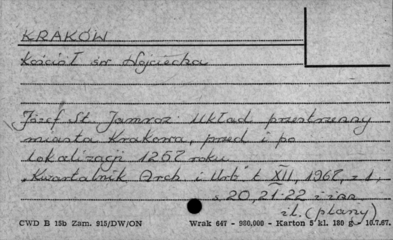 KRAKÓW
Kościół św Wojciecha
Józef St. Jamroz: Układ przestrzenny
miasta Krakowa, przed i po
lokalizacji 1257 roku
"Kwartalnik Arch. i Urb" t XII, 1967, z 1,
s. 20, 21-22 i inn.
il. (plany)
CWD B 15b Zam. 915/DW/ON Wrak 647 - 980,000 - Karton 5 kl. 180 g - 10.7.67.